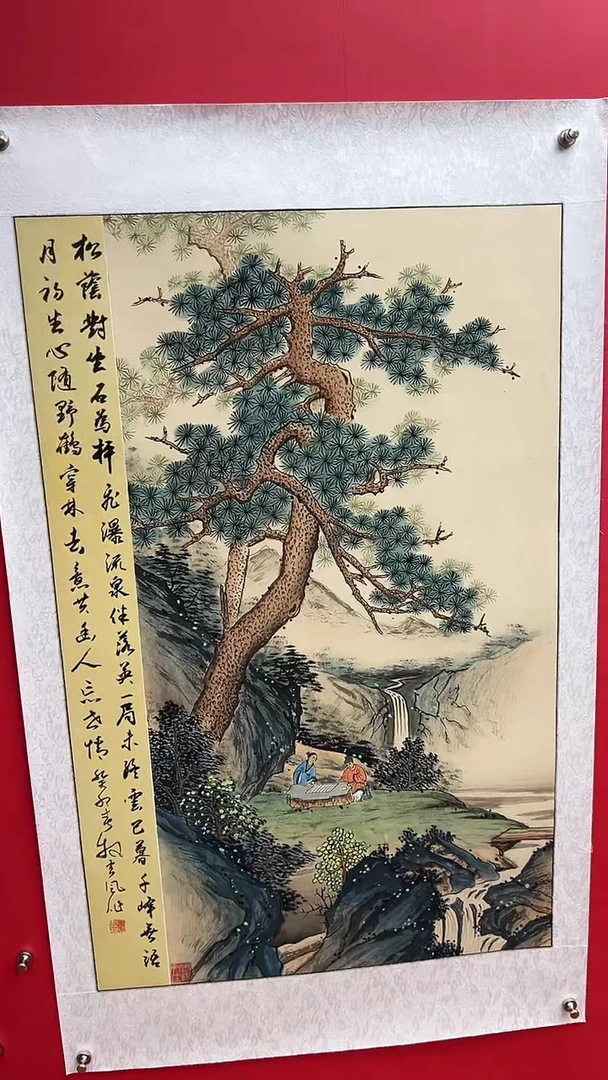 松蔭對坐石為枰飛瀑流泉伴落英一局未終雲已暮千峰無語
月初生心隨野鶴穿林去意共幽人忘世情癸卯春牧青風作